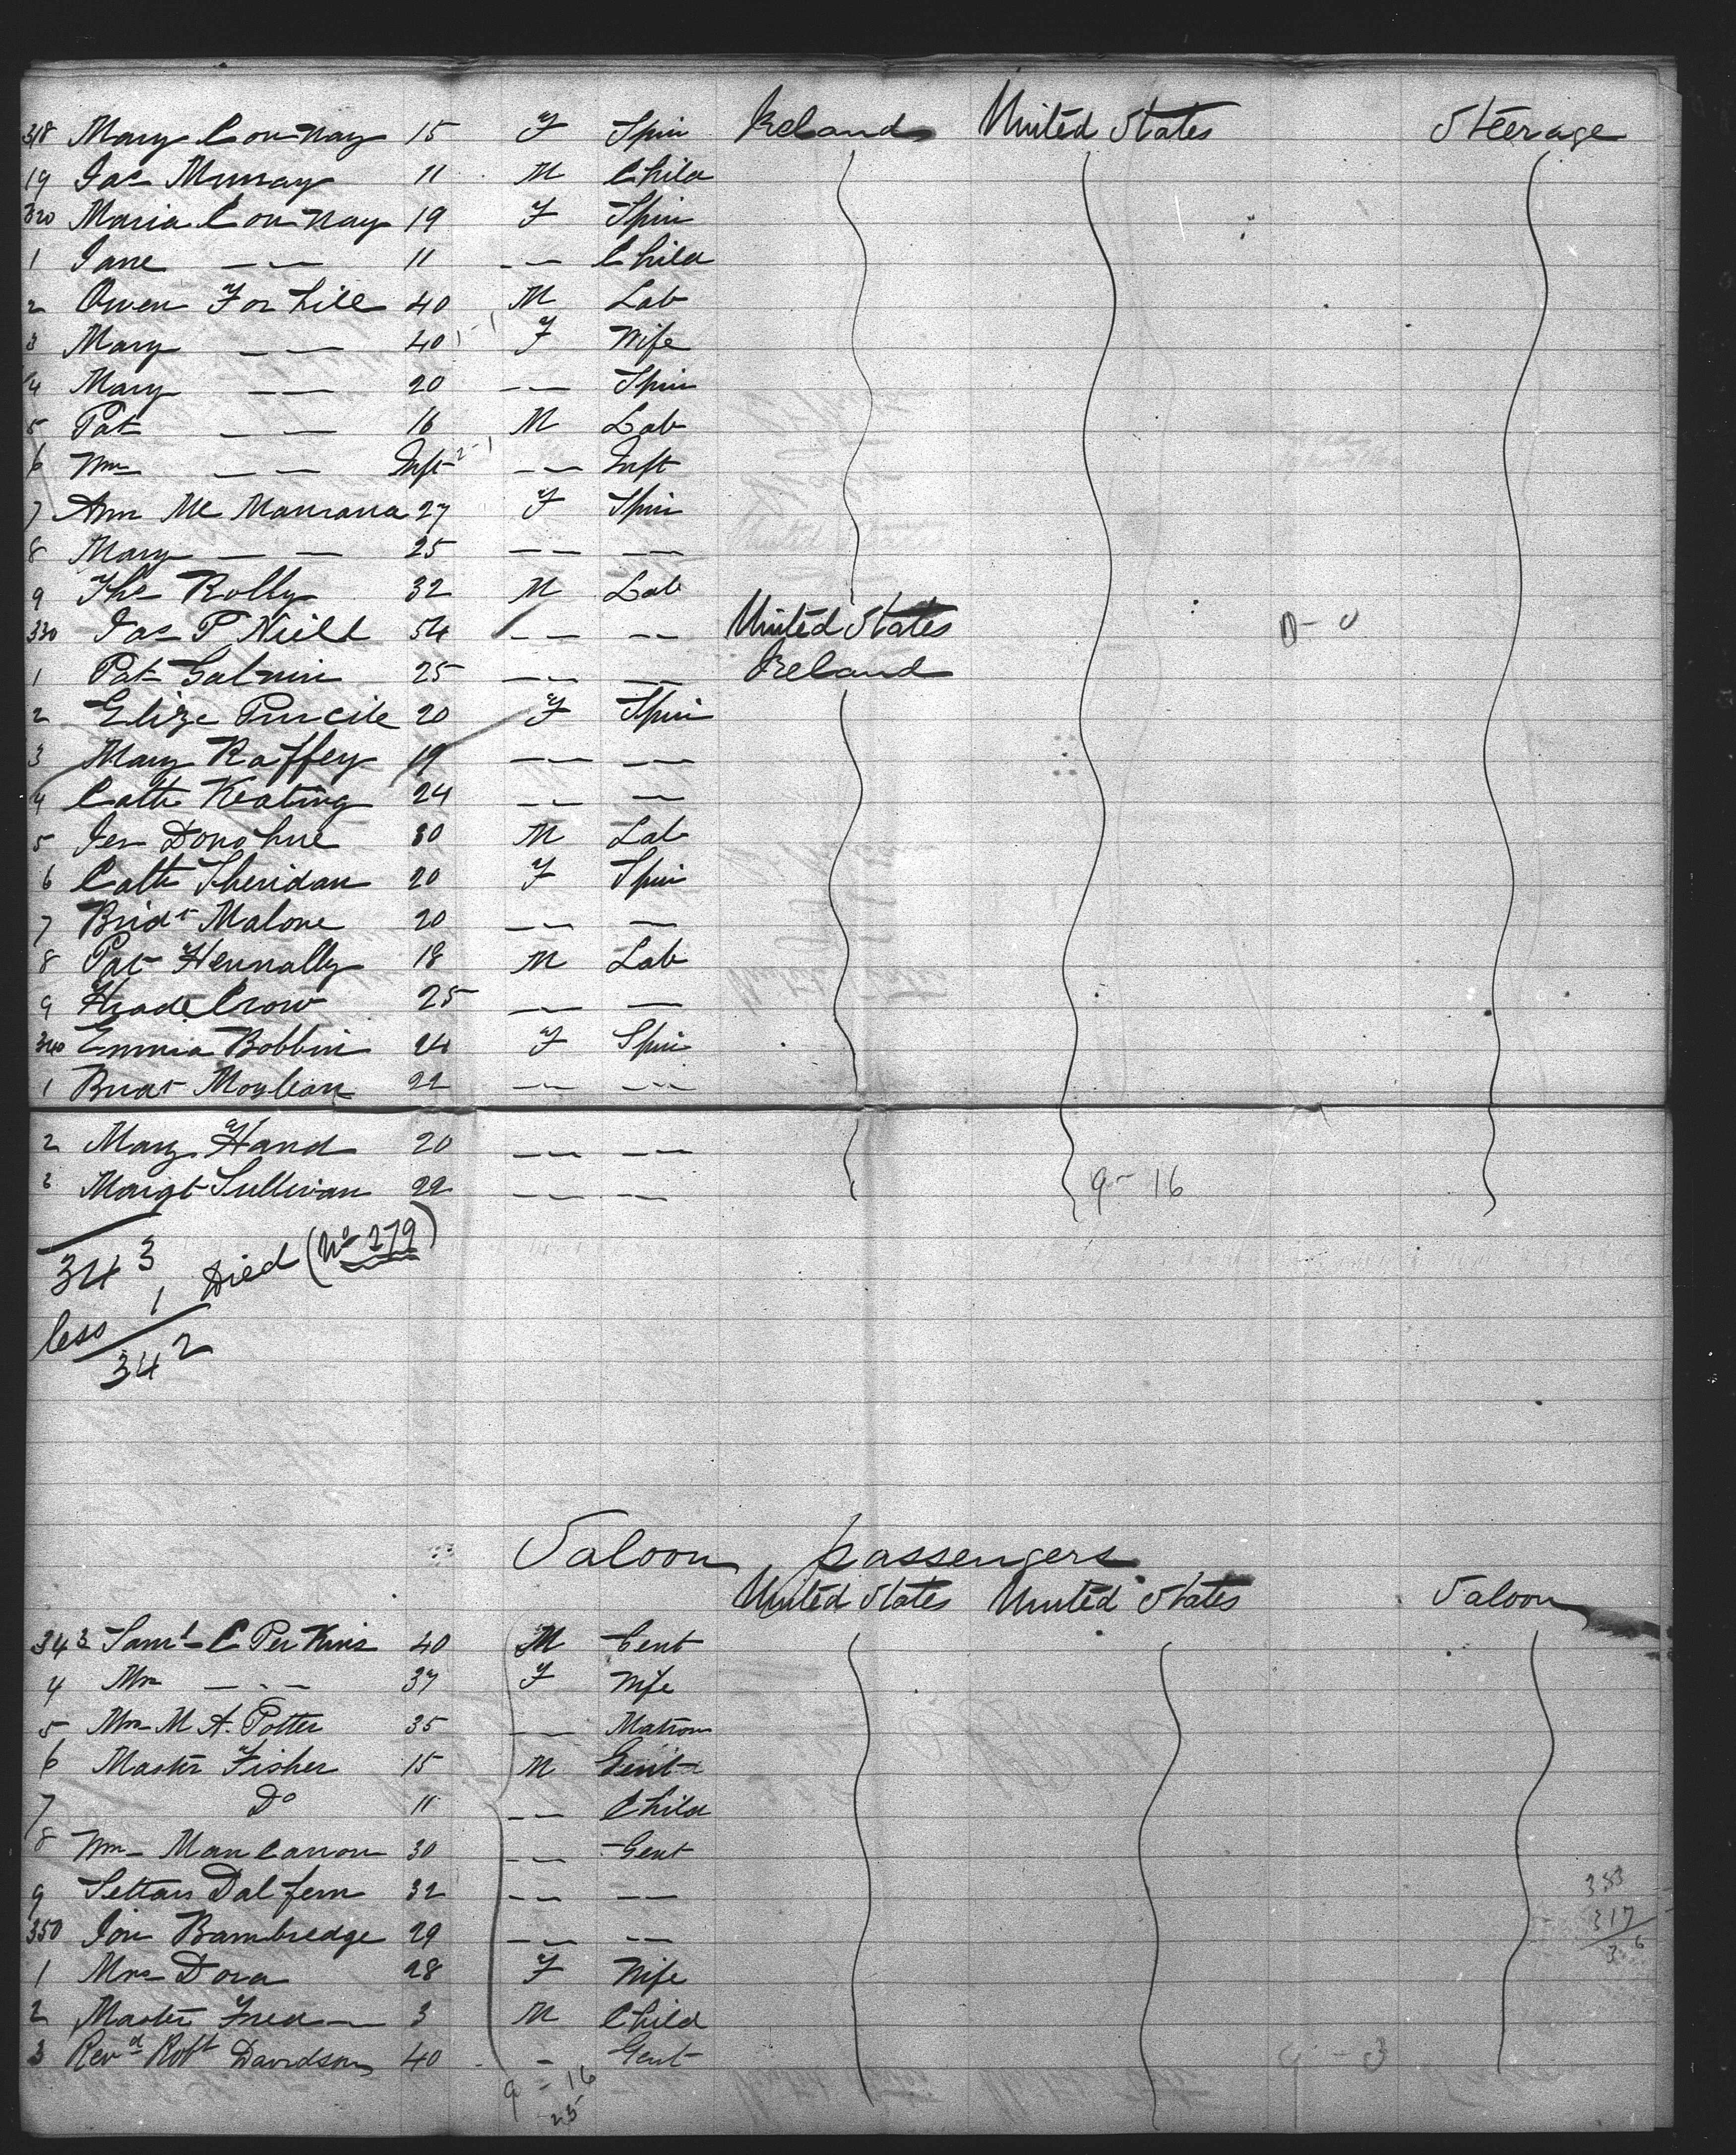 318 Mary Conway 15 F Spin Ireland United States Steerage
19 Jas Murray 11 M Child
320 Maria Conway 19 F Spin
1 Jane — — 11 — — Child
2 Owen 40 M Lab
3 Mary — — 40 F Wife
4 Mary — — 20 — — Spin
5 Pat — — 16 M Lab
6 Wm — — Inft — — Inft
7 Ann Mc 27 F Spin
8 Mary — — 25 — — — —
9 Ths Kelly 32 M Lab
330 Jas P Neill 54 — — — — United States
1 Pat Galvin 25 — — — — Ireland
2 Eliza Purcile 20 F Spin
3 Mary Raffey 19 — — — —
4 Cath Keating 24 — — —
5 Jer Donohue 30 M Lab
6 Cath Sheridan 20 F Spin
7 Bridt Malone 20 — — —
8 Pat Hennally 18 M Lab
9 Crow 25 — — —
340 Emma Bobbin 24 F Spin
1 Bridt 22 — — — —
2 Mary Hand 20 — — — —
3 Margt Sullivan 22 — — — — 9 - 16
343
less 1 Died (No 279)
342
Saloon passengers
United States United States Saloon
343 Saml C Perkins 40 M Gent
4 Mrs — — 37 F Wife
5 Mrs M A. Potter 35 — — Matron
6 Master Fisher 15 M Gent
7 Do 11 — — Child
8 Wm 30 — — Gent
9 32 — — — —
350 Jon Bambredge 29 — — — —
1 Mrs Dora 28 F Wife
2 Master Fred — 3 M Child
3 Revd Robt Davidson 40 - Gent
9 - 16
353
317
36